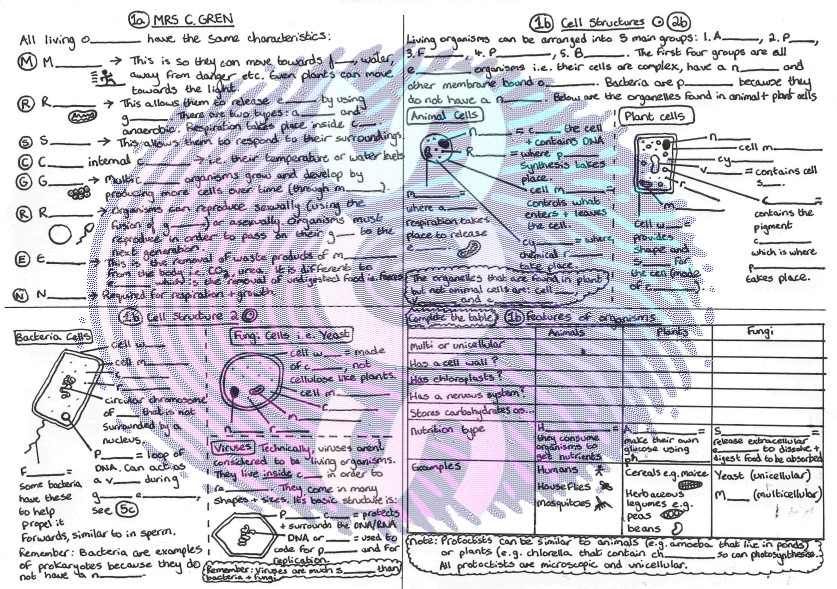 1a MRS C. GREN
All living o______ have the same characteristics:
M M______ → This is so they can move towards f____, water,
away from danger etc. Even plants can move
towards the light.
R R______ → This allows them to release e______ by using
g______. There are two types: a______ and
anaerobic. Respiration takes place inside c____.
S S______ → This allows them to respond to their surroundings.
C C______ internal ______ → i.e. their temperature or water levels
G G______ → Multic______ organisms grow and develop by
producing more cells over time (through m______).
R R______ → Organisms can reproduce sexually (using the
fusion of g______) or asexually. Organisms must
reproduce in order to pass on their g____ to the
next generation.
E E______ → This is the removal of waste products of m______
from the body i.e. CO2, urea. It is different to
______ which is the removal of undigested food i.e. faeces
N N______ → Required for respiration + growth.
1b Cell Structures 2b
Living organisms can be arranged into 5 main groups: 1. A______, 2. P____,
3. F____, 4. P______, 5. B______. The first four groups are all
e______ organisms i.e. their cells are complex, have a n______ and
other membrane bound o______. Bacteria are p______ because they
do not have a n______. Below are the organelles found in animal + plant cells
Animal Cells
n______ = c____ the cell
+ contains DNA
R______ = where p______
synthesis takes
place.
cell m______ =
controls what
enters + leaves
the cell.
m______ =
where a______
respiration takes
place to release
e______
cy______ = where
chemical r______
take place.
The organelles that are found in plant
but not animal cells are: cell ______
v______ and c______
Plant cells
n______
cell m______
cy______
v______ = contains cell
s____.
r______
m______
c______ =
contains the
pigment
c______
which is where
p______
takes place.
cell w____ =
provides
shape and
s______ for
the cell (made
of c______)
1b Cell Structure 2
Bacteria Cells
cell w____
cell m____
c______
r______
circular chromosome
of ____ that is not
surrounded by a
nucleus.
P______ = loop of
DNA. Can act as
a v______ during
g______ e______,
see 5c
F______ =
some bacteria
have these
to help
propel it
forwards, similar to in sperm.
Remember: Bacteria are examples
of prokaryotes because they do
not have a n______.
Fungi Cells i.e. Yeast
cell w____ = made
of c______, not
cellulose like plants.
cell m______
c______
m______
n____ r____
Viruses Technically, viruses aren't
considered to be living organisms.
They live inside c____ in order to
re______. They come in many
shapes + sizes. It's basic structure is:
P______ c____ = protects
+ surrounds the DNA/RNA
DNA or ____ = used to
code for p______ and for
replication.
Remember: Viruses are much s______ than
bacteria + fungi
Complete the table: 1b Features of organisms
Animals Plants Fungi
Multi or unicellular
Has a cell wall?
Has chloroplasts?
Has a nervous system?
Stores carbohydrates as...
Nutrition type
H______ =
they consume
organisms to
get nutrients
A______ =
make their own
glucose using
ph______
S______ =
release extracellular
e______ to dissolve +
digest food to be absorbed
Examples
Humans
Houseflies
Mosquitoes
Cereals e.g. maize
Herbaceous
legumes e.g.
peas
beans
Yeast (unicellular)
M____ (multicellular)
Note: Protoctists can be similar to animals (e.g. amoeba that live in ponds)
or plants (e.g. chlorella that contain ch______ so can photosynthesise.
All protoctists are microscopic and unicellular.